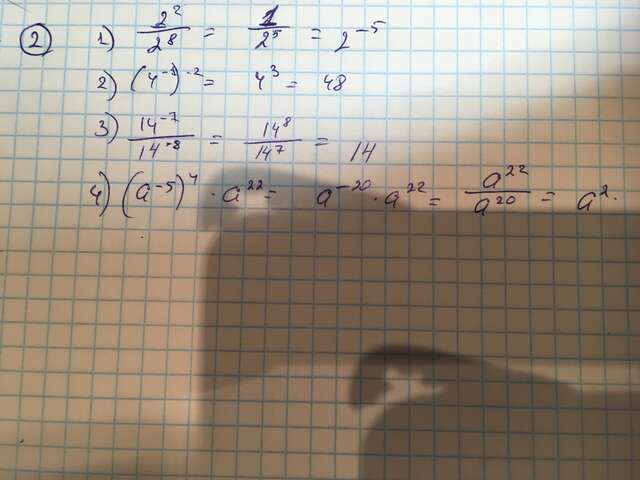 2
1) 2²/2⁸ = 1/2⁵ = 2⁻⁵
2) (4⁻¹)⁻² = 4³ = 48
3) 14⁻⁷/14⁻⁸ = 14⁸/14⁷ = 14
4) (a⁻⁵)⁴ · a²² = a⁻²⁰ · a²² = a²²/a²⁰ = a².